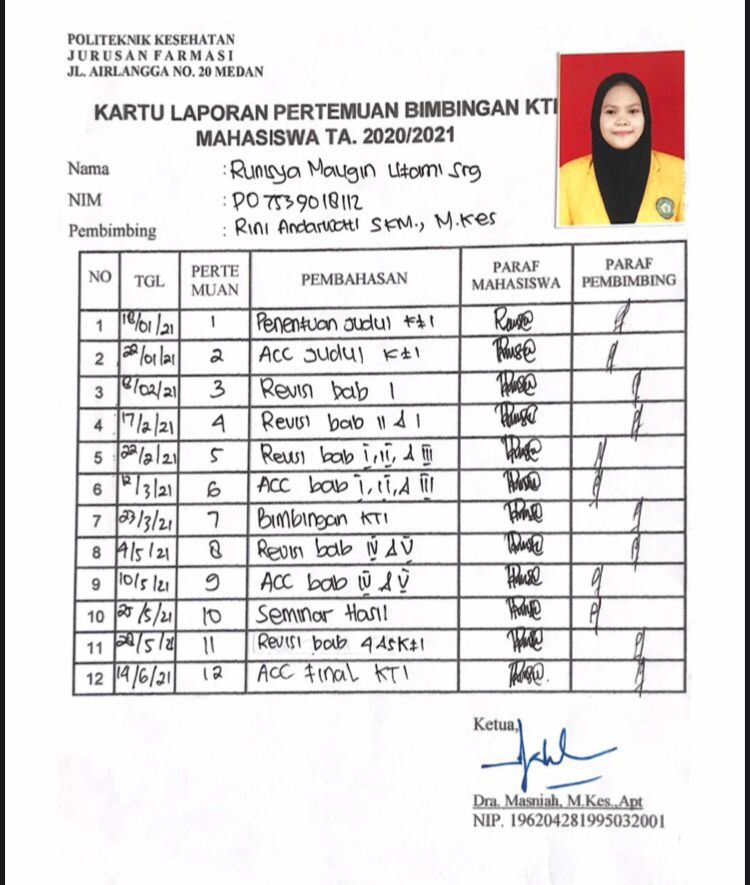 POLITEKNIK KESEHATAN
JURUSAN FARMASI
JL. AIRLANGGA NO. 20 MEDAN
KARTU LAPORAN PERTEMUAN BIMBINGAN KTI
MAHASISWA TA. 2020/2021
Nama : Runisya Maygin Utami Srg
NIM : PO 7539018112
Pembimbing : Rini Andarwati SKM., M.Kes
NO TGL PERTE MUAN PEMBAHASAN PARAF MAHASISWA PARAF PEMBIMBING
1 18/01/21 1 Penentuan Judul KTI
2 22/01/21 2 ACC Judul KTI
3 8/02/21 3 Revisi bab I
4 17/2/21 4 Revisi bab II & I
5 22/2/21 5 Revisi bab I, II, & III
6 12/3/21 6 ACC bab I, II, & III
7 23/3/21 7 Bimbingan KTI
8 4/5/21 8 Revisi bab IV & V
9 10/5/21 9 ACC bab IV & V
10 25/5/21 10 Seminar Hasil
11 28/5/21 11 Revisi bab 4 & 5 KTI
12 14/6/21 12 ACC Final KTI
Ketua,
Dra. Masniah, M.Kes.,Apt
NIP. 196204281995032001